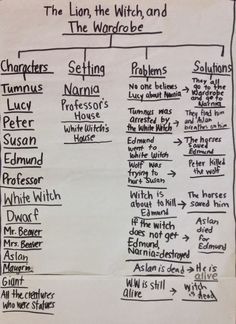 The Lion, the Witch, and
The Wardrobe
Characters
Tumnus
Lucy
Peter
Susan
Edmund
Professor
White Witch
Dwarf
Mr. Beaver
Mrs. Beaver
Aslan
Maugrim
Giant
All the creatures
who were statues
Setting
Narnia
Professor's
House
White Witch's
House
Problems
No one believes
Lucy about Narnia
Tumnus was
arrested by
the White Witch
Edmund
went to
White Witch
Wolf was
trying to
hurt Susan
Witch is
about to kill
Edmund
If the witch
does not get
Edmund,
Narnia=destroyed
Aslan is dead
W.W is still
alive
Solutions
They all
go to the
Wardrobe
and go to
Narnia
They find him
and Aslan
breaths on him
The horses
saved
Edmund
Peter killed
the wolf
The horses
saved him
Aslan
died
for
Edmund
He is
alive
witch
is dead